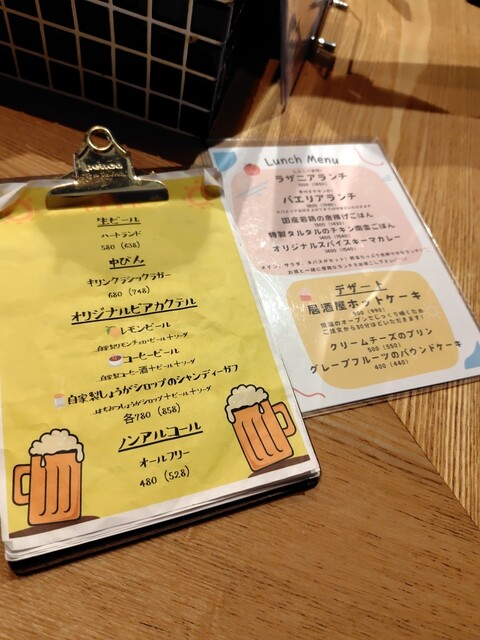 生ビール
ハートランド
580 (638)
中びん
キリンクラシックラガー
680 (748)
オリジナルビアカクテル
レモンビール
自家製リモンチェッロ+ビール+ソーダ
コーヒービール
自家製コーヒー酒+ビール+ソーダ
自家製しょうがシロップのシャンディーガフ
はちみつしょうがシロップ+ビール+ソーダ
各780 (858)
ノンアルコール
オールフリー
480 (528)
Lunch Menu
ラザニアランチ
パエリアランチ
国産若鶏の唐揚げごはん
特製タルタルのチキン南蛮ごはん
オリジナルスパイスキーマカレー
デザート
居酒屋ホットケーキ
900 (990)
低温のオーブンでじっくり焼くため
ご注文から30分ほどいただきます!
クリームチーズのプリン
500 (550)
グレープフルーツのパウンドケーキ
400 (440)